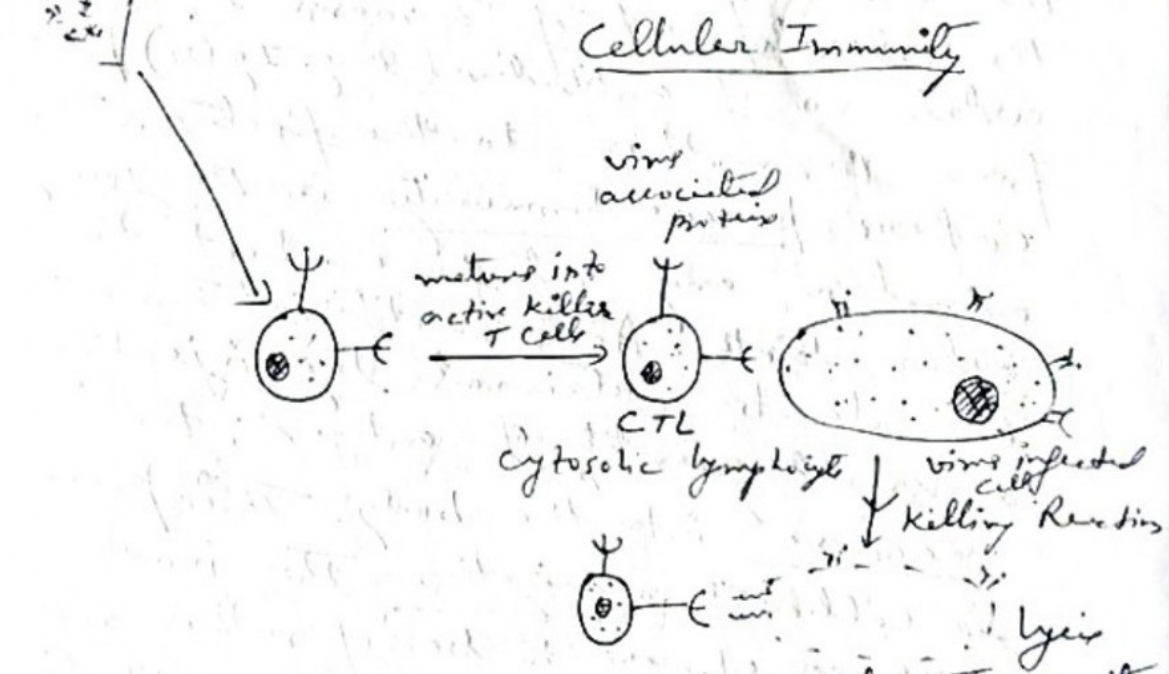 Cellular Immunity
virus
associated
protein
matures into
active killer
T cells
CTL
Cytosolic lymphocyte
virus infected
cells
Killing Reaction
Lysis